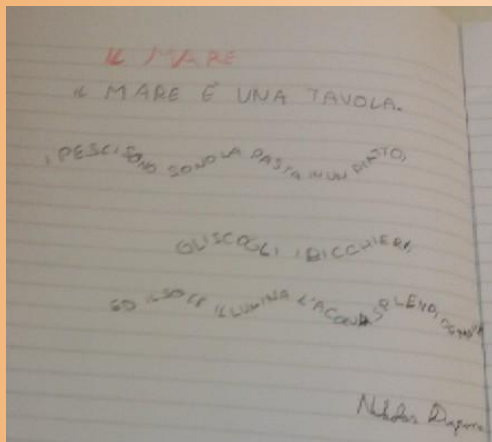 IL MARE
IL MARE È UNA TAVOLA.
I PESCI SONO SONO LA PASTA IN UN PIATTO,
GLI SCOGLI I BICCHIERI,
ED IL SOLE ILLUMINA L'ACQUA SPLENDIDA